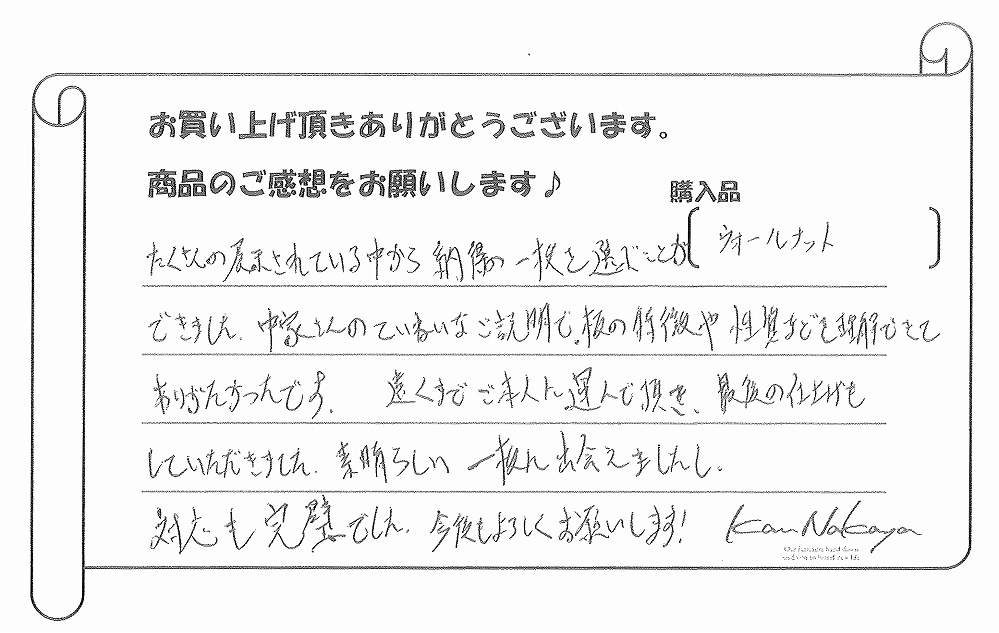 お買い上げ頂きありがとうございます。
商品のご感想をお願いします♪
購入品
ウォールナット
たくさんの展示されている中から納得の一枚を選ぶことが
できました。中家さんのていねいなご説明で、板の特徴や性質なども理解できて
ありがたかったです。 遠くまでご本人に運んで頂き、最後の仕上げも
していただきました。素晴らしい一枚に出会えましたし、
対応も完璧でした。今後もよろしくお願いします!
Kan Nakaya